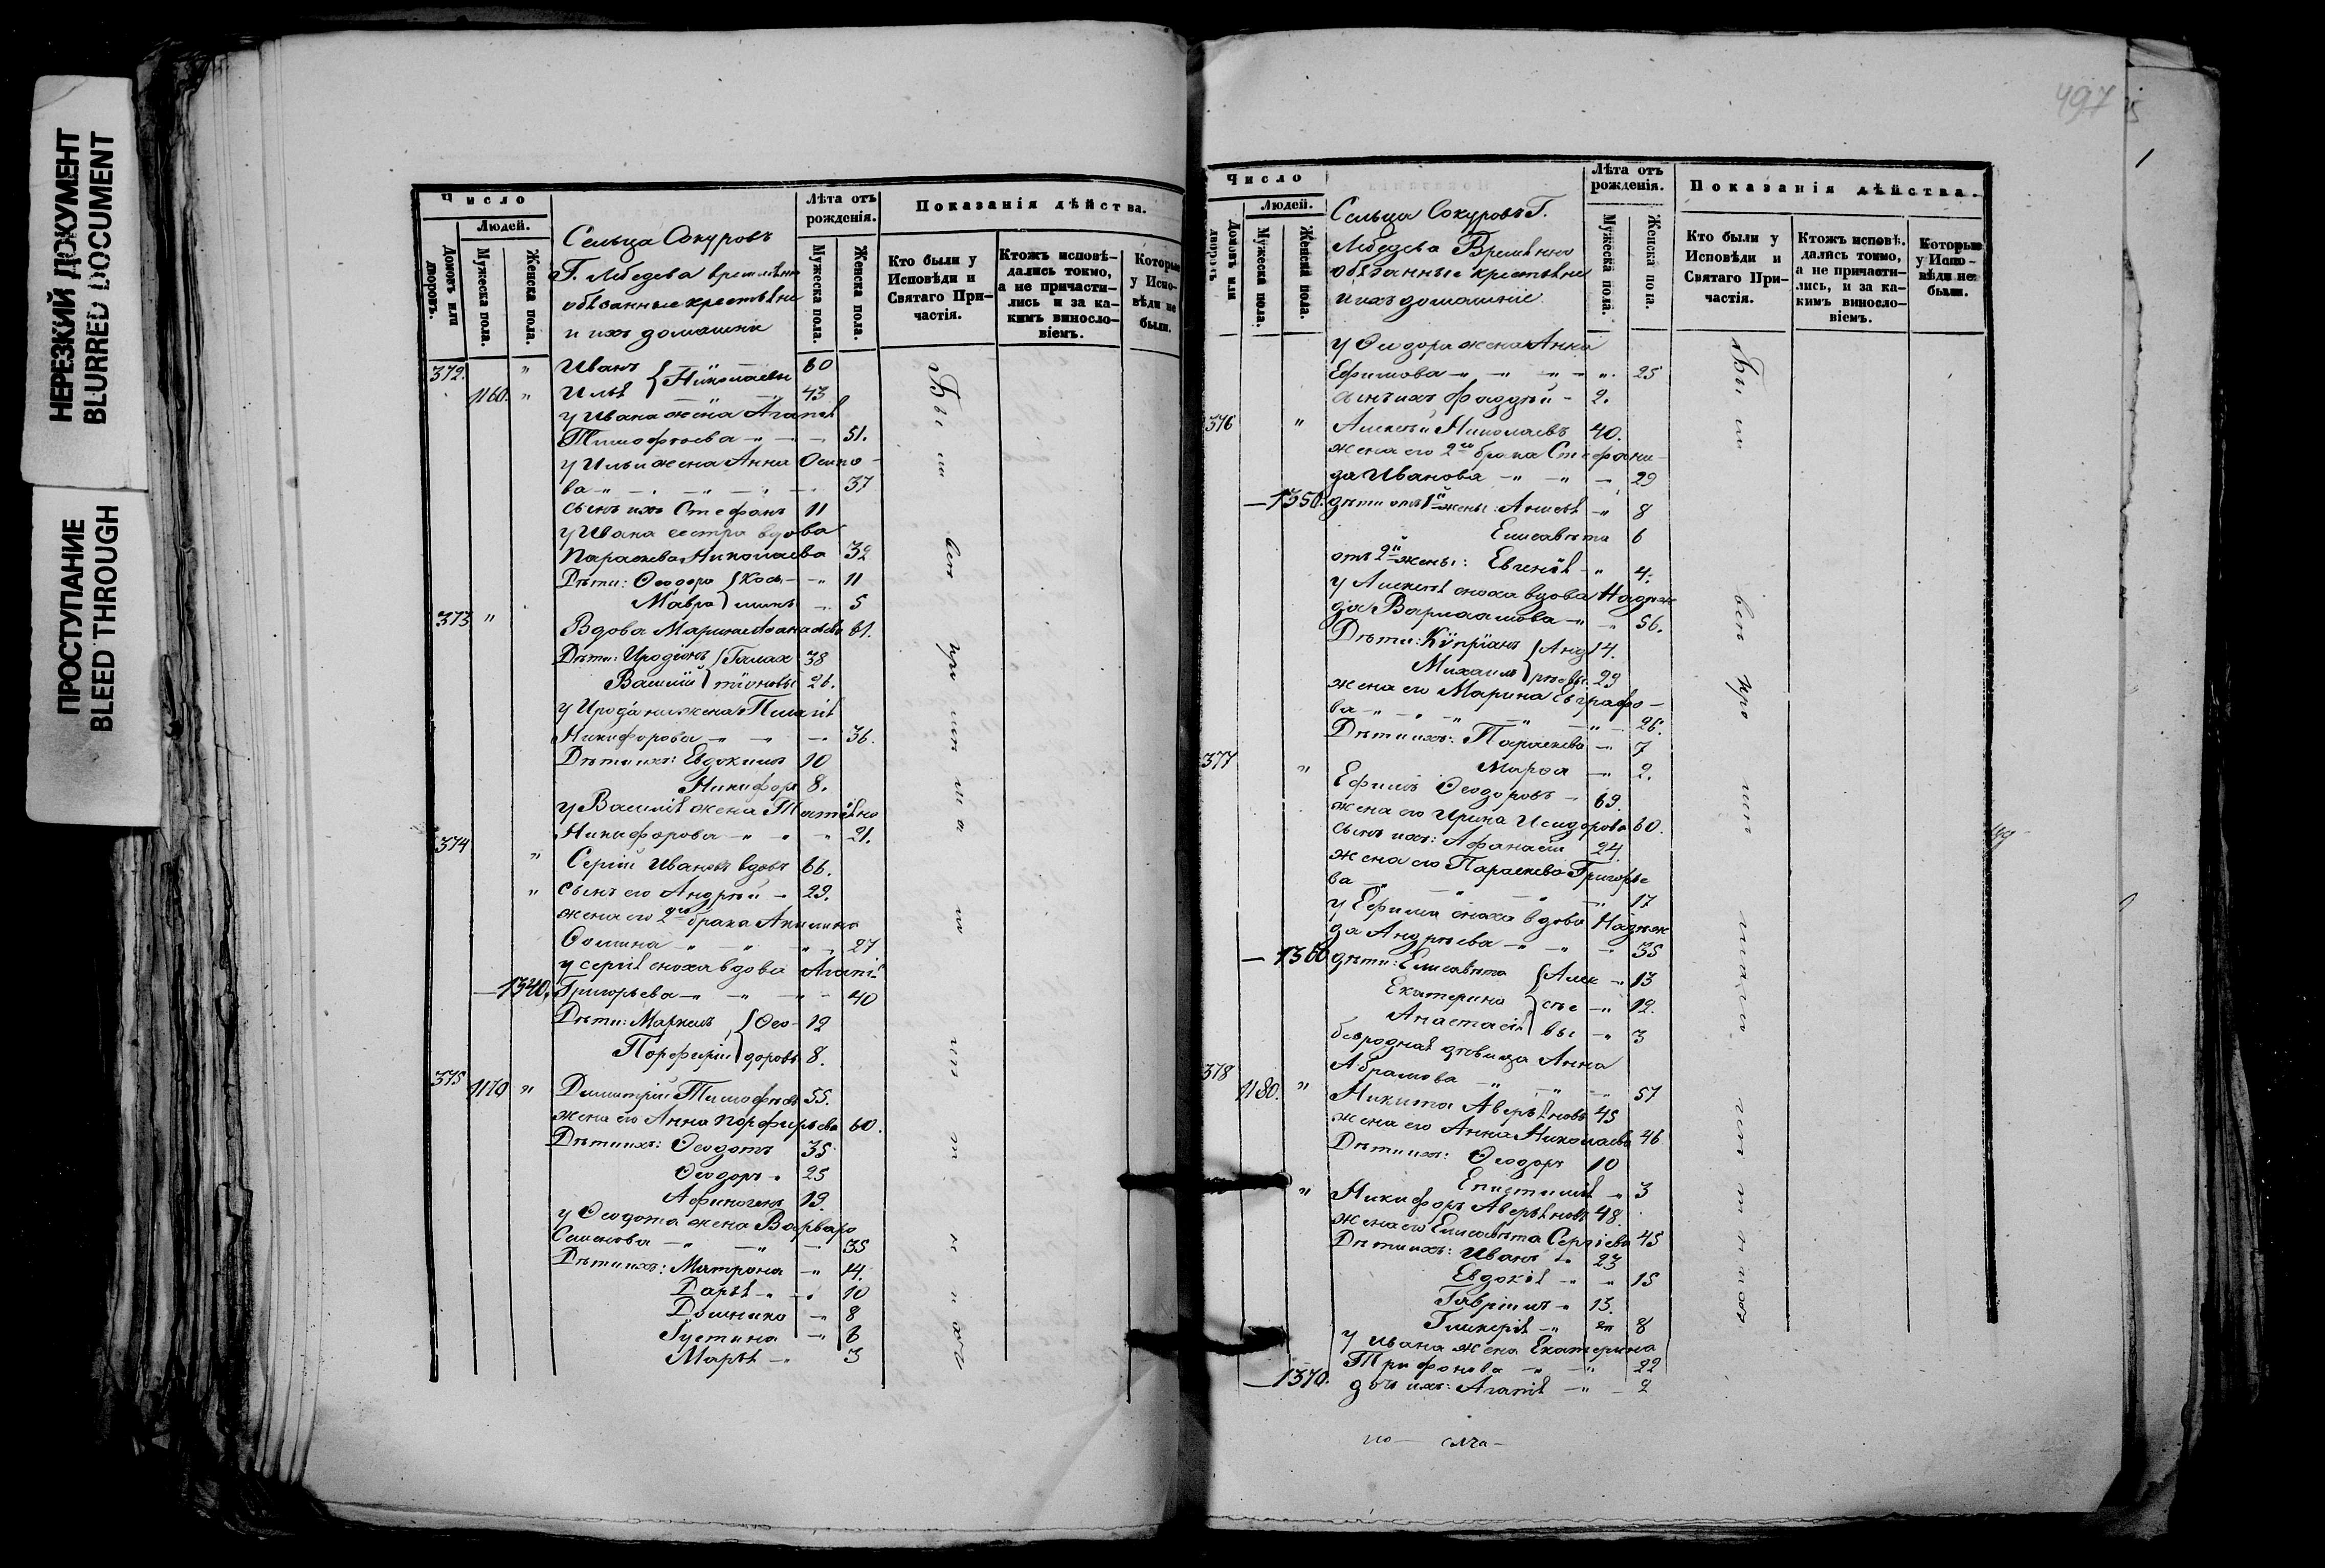 НЕРЕЗКИЙ ДОКУМЕНТ
BLURRED DOCUMENT
ПРОСТУПАНИЕ
BLEED THROUGH
Число
Людей.
Домовъ или дворовъ.
Мужеска пола.
Женска пола.
Сельца Сокуровъ
Г. Лебедева временно
обязанные крестьяне
и ихъ домашніи
Лѣта отъ рожденія.
Мужеска пола.
Женска пола.
Показанія дѣйства.
Кто были у Исповѣди и Святаго При-частія.
Ктожъ исповѣ-дались токмо, а не причасти-лись и за ка-кимъ винословіемъ.
Которые у Испо-вѣди не были.
372. " Иванъ 60
1160. " Илья } Николаевы 43
у Ивана жена Агапія
Тимофѣева " 51.
у Ильи жена Анна Осипо-
ва " 37
сынъ ихъ Стефанъ 11
у Ивана сестра вдова
Параскева Николаева 32
Дѣти: Ѳеодора { Кось- " 11
Мавра } мины " 5
373 " Вдова Марина Аѳанасьева 61.
Дѣти: Иродіонъ { Галак 38
Василій } тіоновы 26.
у Иродіона жена Пелагія
Никифорова " 36.
Дѣти ихъ: Евдокимъ 10
Никифоръ 8.
у Василія жена Татіана
Никифорова " 21.
374 " Сергій Ивановъ вдовъ 66.
" сынъ его Андрей 29.
жена его 2го брака Акилина
Ѳомина " 27
у Сергія сноха вдова Агапія
—1340. Григорьева " 40
Дѣти: Маркелъ { Ѳео- 12
Порфирій } доровы 8.
375 1170 " Димитрій Тимофѣевъ 55.
жена его Анна Порфирьева 60.
Дѣти ихъ: Ѳеодотъ 35
Ѳеодоръ " 25
Афиногенъ 19.
у Ѳеодота жена Варвара
Семенова " 35
Дѣти ихъ: Матрона " 14.
Дарья " 10
Домника " 8
Іустина " 6
Марья " 3
497
Число
Людей.
Домовъ или дворовъ
Мужеска пола.
Женска пола.
Сельца Сокуровъ Г.
Лебедева Временно
обязанные крестьяне
и ихъ домашніе
Лѣта отъ рожденія.
Мужеска пола.
Женска пола.
Показанія дѣйства.
Кто были у Исповѣди и Святаго При-частія.
Ктожъ исповѣ. дались токмо, а не причасти-лись, и за ка-кимъ винословіемъ.
Которые у Испо-вѣди не были.
у Ѳеодора жена Анна
Ефимова " " 25
сынъ ихъ Фаддей - 2.
376 " Алексѣй Николаевъ 40.
жена его 2го брака Стефани-
да Иванова " 29
—1350. дѣти отъ 1й жены: Алисея " 8
Елисавета 6
отъ 2й жены: Евгенія " 4.
у Алексѣя сноха вдова Надеж
да Варлаамова " 56.
Дѣти: Кѵпріанъ { Анд 14.
Михаилъ } реевы 29
жена его Марина Евграфо-
ва " 26.
Дѣти ихъ: Параскева " 7
Марѳа " 2.
377 " Ефимъ Ѳеодоровъ 69.
жена его Ирина Исидорова 60.
сынъ ихъ: Афанасій 24.
жена его Параскева Григорье
ва " 17
у Ефима сноха вдова Надеж
да Андреева " 35
—1360 дѣти: Елисавета { Алек " 13
Екатерина сѣе " 12.
Анастасія } вы " 3
безродная дѣвица Анна
Абрамова " 57
378 1180. " Никита Аверьяновъ 45
жена его Анна Николаева 46
Дѣти ихъ: Ѳеодоръ 10
Епистимія " 3
" Никифоръ Аверьяновъ 48.
жена его Елисавета Сергіева 45
Дѣти ихъ: Иванъ " 23
Евдокія " " 15
Гавріилъ " 13.
Гликерія " 8
у Ивана жена Екатерина
Трифонова " 22
—1370. дочь ихъ: Агапія " 2